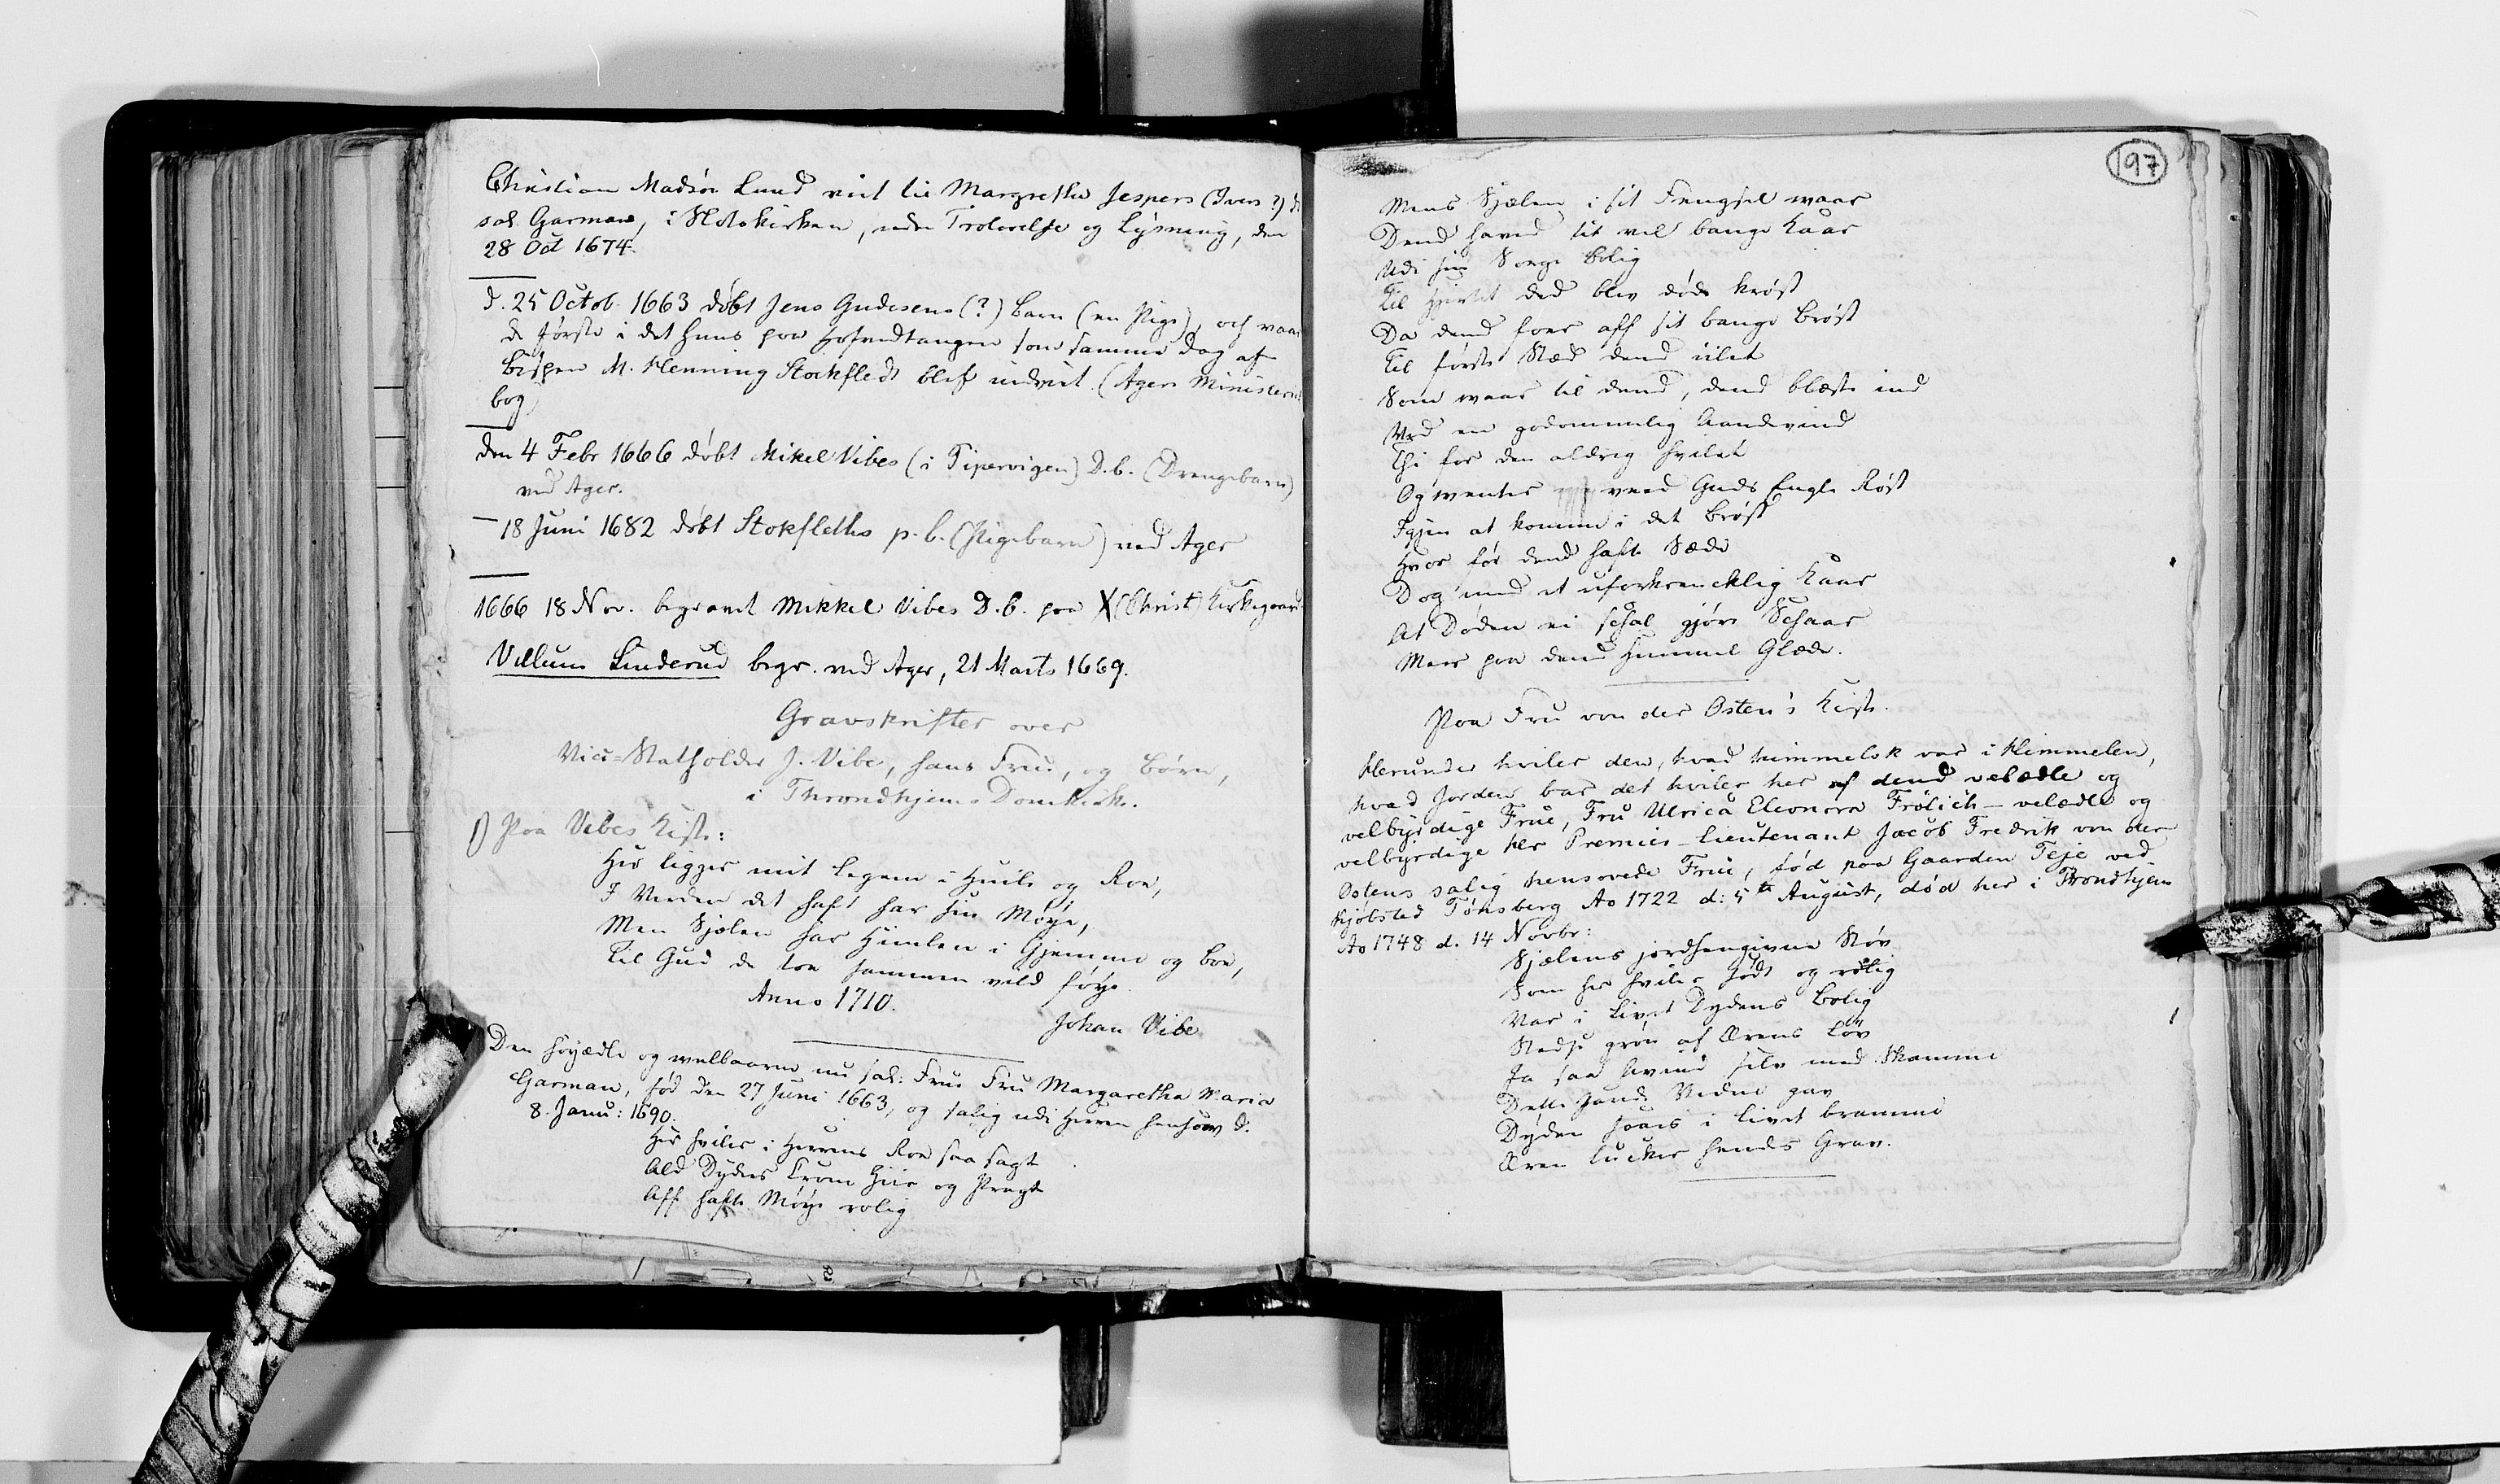 Christian Madsøn Lund viet til Margrethe Jespers (Ivers?) d
sal. Garmans, i Slotskirken, uden Trolovelse og Lysning, den
28 Oct 1674.
d. 25 Octob. 1663 døbt Jens Gudesens (?) barn (en Pige), och vaar
de første i det huus paa hofvedtangen som samme Dag af
Bispen M. Henning Stockfledt blef indviet. (Agers Ministerial
bog)
den 4 Febr 1666 døbt Mikel Vibes (i Pipervigen) D.b. (Drengebarn)
ved Ager.
— 18 Juni 1682 døbt Stokfleths p.b. (Pigebarn) ved Ager
1666 18 Nov. begravet Mikkel Vibes D.b. paa X (Christ) Kirkegaard
Villum Linderud begr. ved Ager, 21 Marts 1669.
Gravskrifter over
Vice-Statholder J. Vibe, hans Frue, og Børn,
i Throndhjems Domkirke.
1) Paa Vibes Kiste:
Her ligger mit Legem i Hvile og Roe,
I Verden det haft har sin Møye,
Men Sjælen har Himlen i Gjemme og boe,
Til Gud de toe sammen vild føye.
Anno 1710.
Johan Vibe
Den høyædle og velbaarne nu sal: Frue Fru Margaretha Maria
Garman, fød den 27 Juni 1663, og salig udi Herren hensoov d.
8. Janu: 1690.
Her hviler i Herrens Roe saa sagt
Ald Dyders Krone Ziir og Pragt
Aff hafte Møye rolig
197
Mens Sjælen i sit Fengsel waar
Dend havde sit vel bange Kaar
Udi sin Sorge bolig
Til Hiertet ded blev døds krøst
Da dend foer aff sit bange brøst
Til første Stæd dend iilet
Som waar til dend, dend blæste ind
Ved en godommelig Aandevind
Thi for den aldrig hvilet
Og venter ved Guds Engle Røst
Igjen at komme i det brøst
Hvor før dend hafte Sæde
Dog med et uforkrencklig Kaar
At Døden ei schal gjøre Schaar
Meer paa dend Himmel Glæde.
Paa Fru von der Osten's Kiste.
Herunder hviler den, hvad himmelsk var i Himmelen,
hvad Jorden bar det hviler her af dend velædle og
velbyrdige Frue, Fru Ulrica Eleonora Frölich – velædle og
velbyrdige Hr Premier-Lieutenant Jacob Fredrik von der
Ostens salig hensovede Frue, fød paa Gaarden Teje ved
Kjøbsted Tønsberg Ao 1722 d: 5te August, død her i Trondhjem
Ao 1748 d. 14 Novbr:
Sjælens jordhengivne Støv
Som her hviler sødt og rolig
Var i Livet Dydens Bolig
Stedse grøn af Ærens Løv
Ja saa Avind selv med Skamme
Dette Sande Vidne gav
Dyden saaes i Livet bramme
Æren lucker hendes Grav.